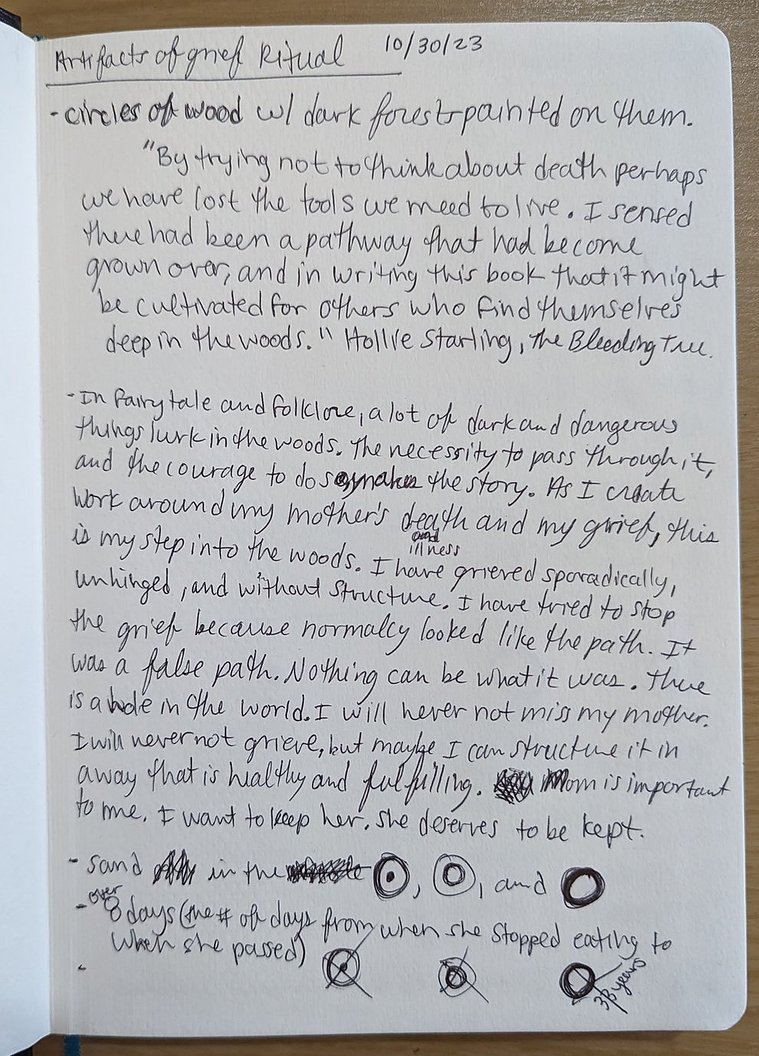 Artifacts of grief Ritual 10/30/23
- circles of wood w/ dark forest painted on them.
"By trying not to think about death perhaps
we have lost the tools we need to live. I sensed
there had been a pathway that had become
grown over, and in writing this book that it might
be cultivated for others who find themselves
deep in the woods." Hollie Starling, The Bleeding Tree.
- In fairytale and folklore, a lot of dark and dangerous
things lurk in the woods. The necessity to pass through it,
and the courage to do so makes the story. As I create
work around my mother's death and my grief, this
and illness
is my step into the woods. I have grieved sporadically,
unhinged, and without structure. I have tried to stop
the grief because normalcy looked like the path. It
was a false path. Nothing can be what it was. There
is a hole in the world. I will never not miss my mother.
I will never not grieve, but maybe I can structure it in
a way that is healthy and fulfilling. Mom is important
to me. I want to keep her. She deserves to be kept.
- sand in the , , and
- over 8 days (the # of days from when she stopped eating to
when she passed)
- 38 years